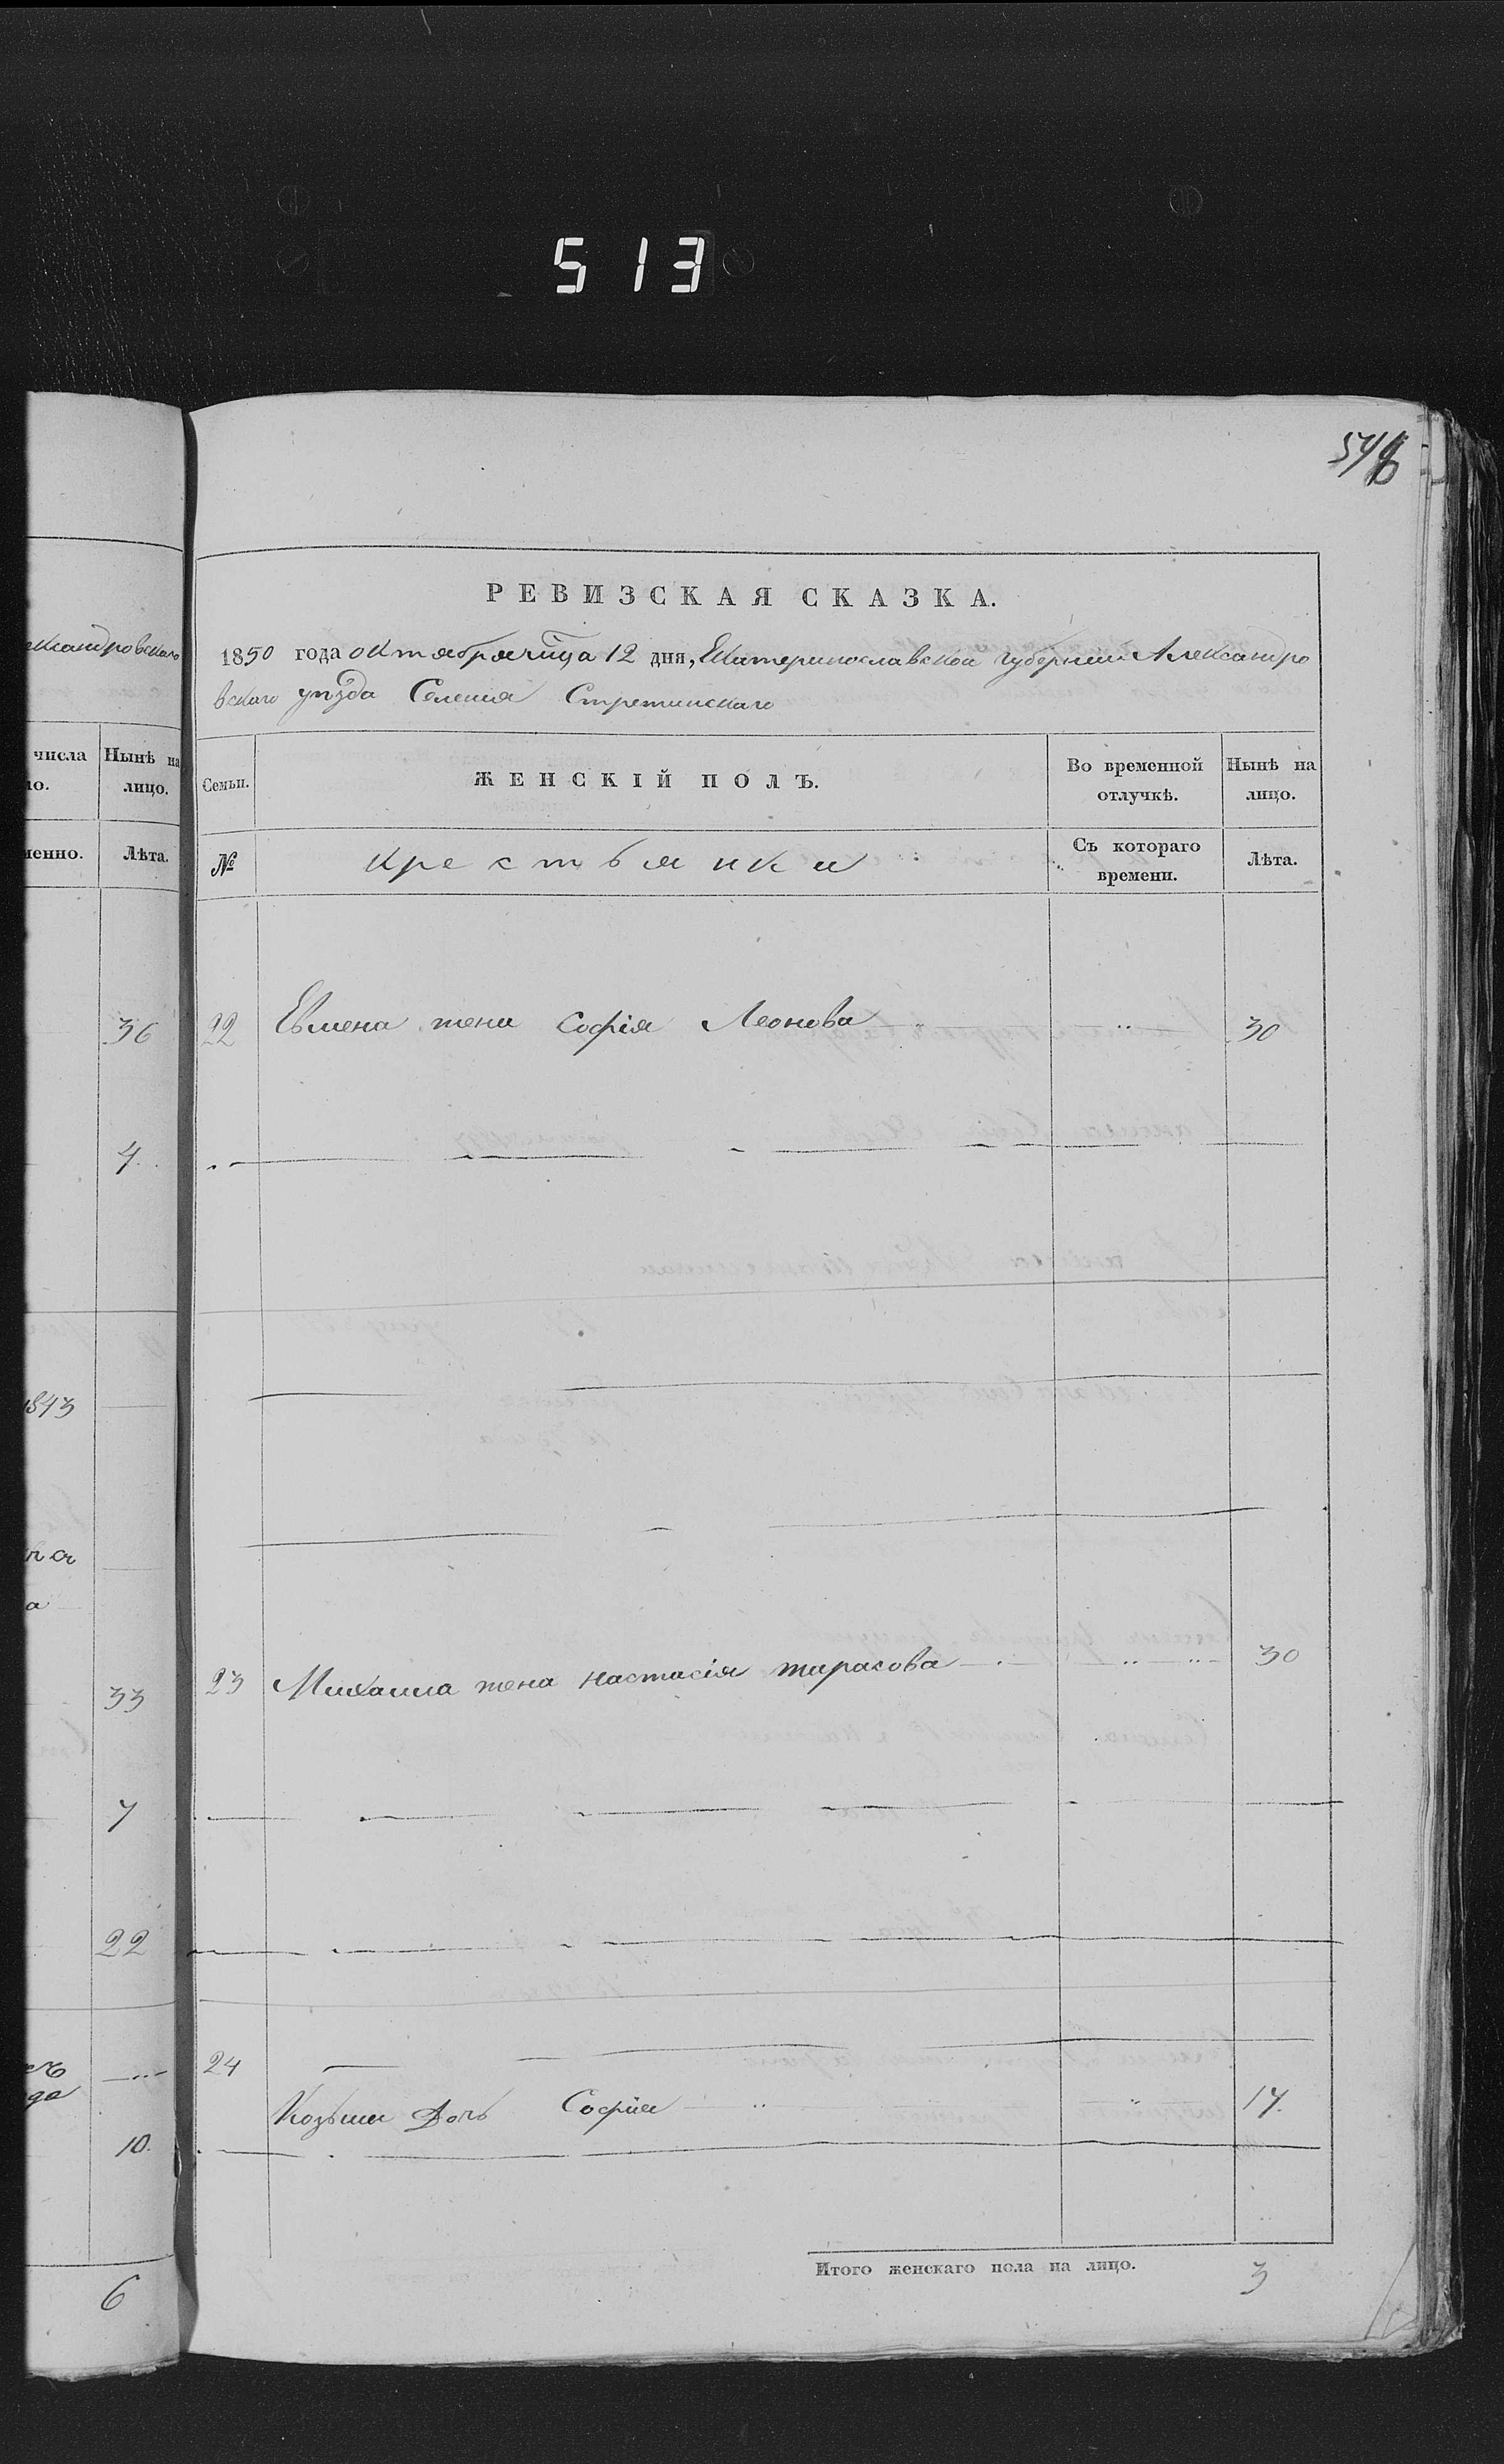 513
РЕВИЗСКАЯ СКАЗКА.
1850 года октября мца 12 дня, Екатеринославской губернии Александро
вскаго уѣзда Селения Стретинскаго
Семьи.
ЖЕНСКІЙ ПОЛЪ.
Во временной отлучкѣ.
Нынѣ на лицо.
№
крестьянки
Съ котораго времени.
Лѣта.
22 Евмена жена Софія Леонова 30
23 Михаила жена настасія тарасова 30
24
Козьмы Дочь Софія 17
Итого женскаго пола на лицо. 3
ександровскаго
числа
ло.
Нынѣ на
лицо.
менно.
Лѣта.
36
4
1843
33
7
22
10.
6